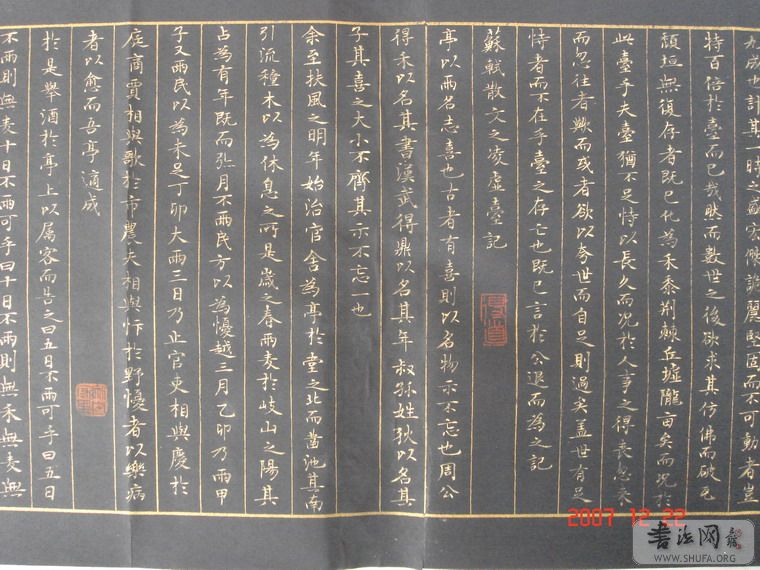 九成也計其一時之盛宏傑詭麗堅固而不可動者豈
特百倍於臺而已哉然而數世之後欲求其仿佛而破瓦
頹垣無復存者既已化為禾黍荊棘丘墟隴畝矣而況於
此臺乎夫臺猶不足恃以長久而況於人事之得喪忽來
而忽往者歟而或者欲以夸世而自足則過矣蓋世有足
恃者而不在乎臺之存亡也既已言於公退而為之記
蘇軾散文之凌虛臺記
亭以雨名志喜也古者有喜則以名物示不忘也周公
得禾以名其書漢武得鼎以名其年叔孫姓狄以名其
子其喜之大小不齊其示不忘一也
余至扶風之明年始治官舍為亭於堂之北而鑿池其南
引流種木以為休息之所是歲之春雨麥於岐山之陽其
占為有年既而弥月不雨民方以為憂越三月乙卯乃雨甲
子又雨民以為未足丁卯大雨三日乃止官吏相與慶於
庭商賈相與歌於市農夫相與忭於野憂者以樂病
者以愈而吾亭適成
於是舉酒於亭上以属客而告之曰五日不雨可乎曰五日
不雨則無麥十日不雨可乎曰十日不雨則無禾無麥無
2007 12 22
書法网
WWW.SHUFA.ORG